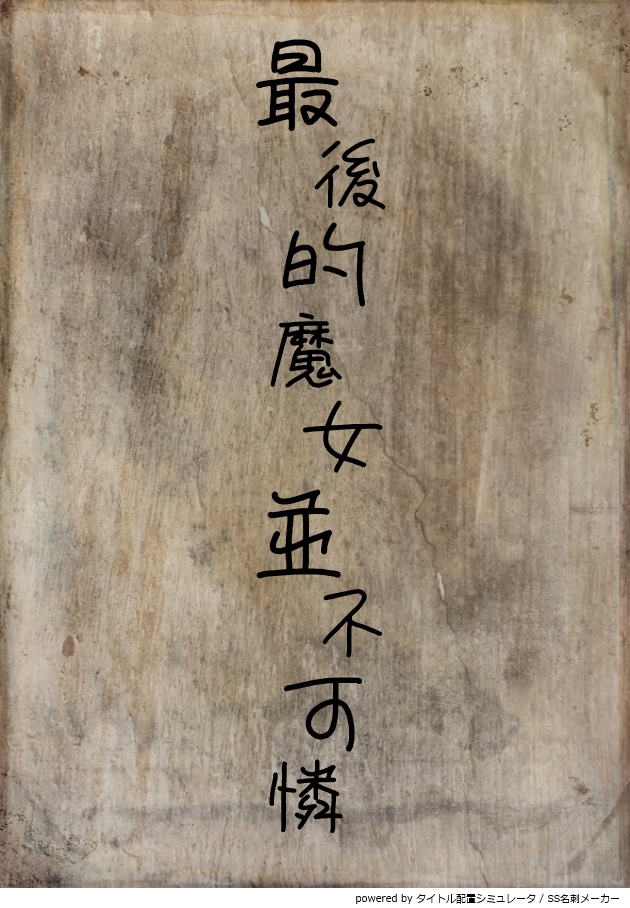 最後的魔女並不可憐
powered by タイトル配置シミュレータ / SS名刺メーカー